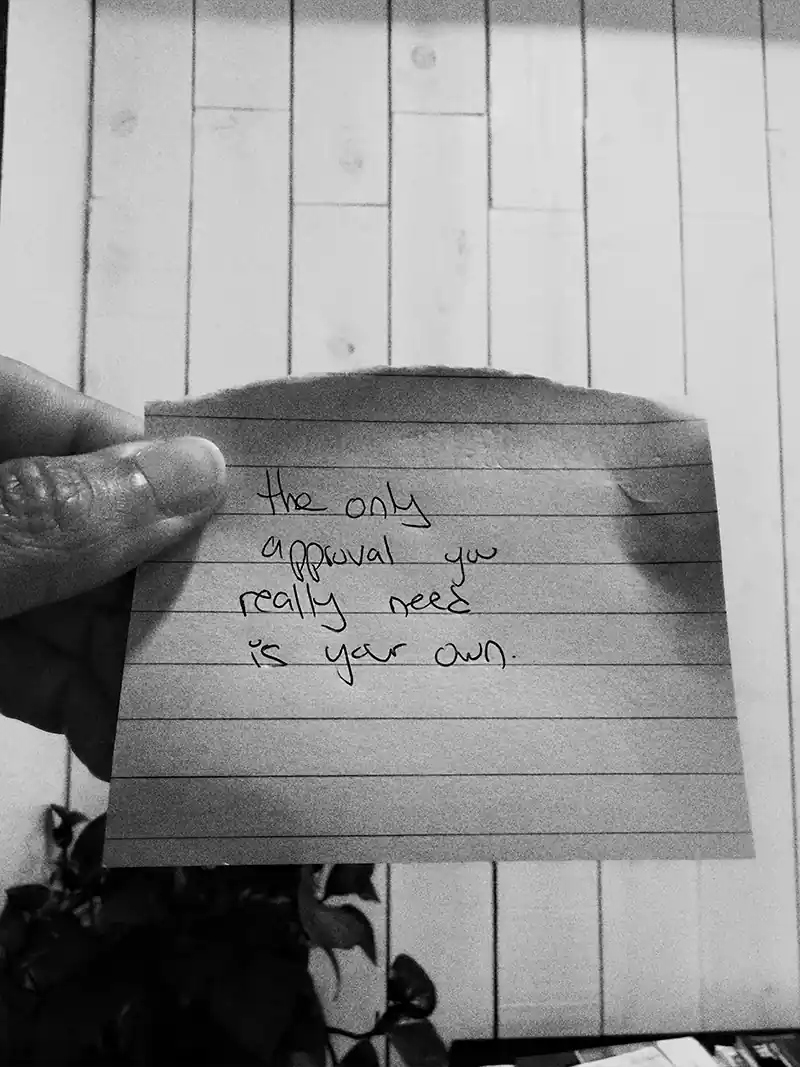 the only
approval you
really need
is your own.